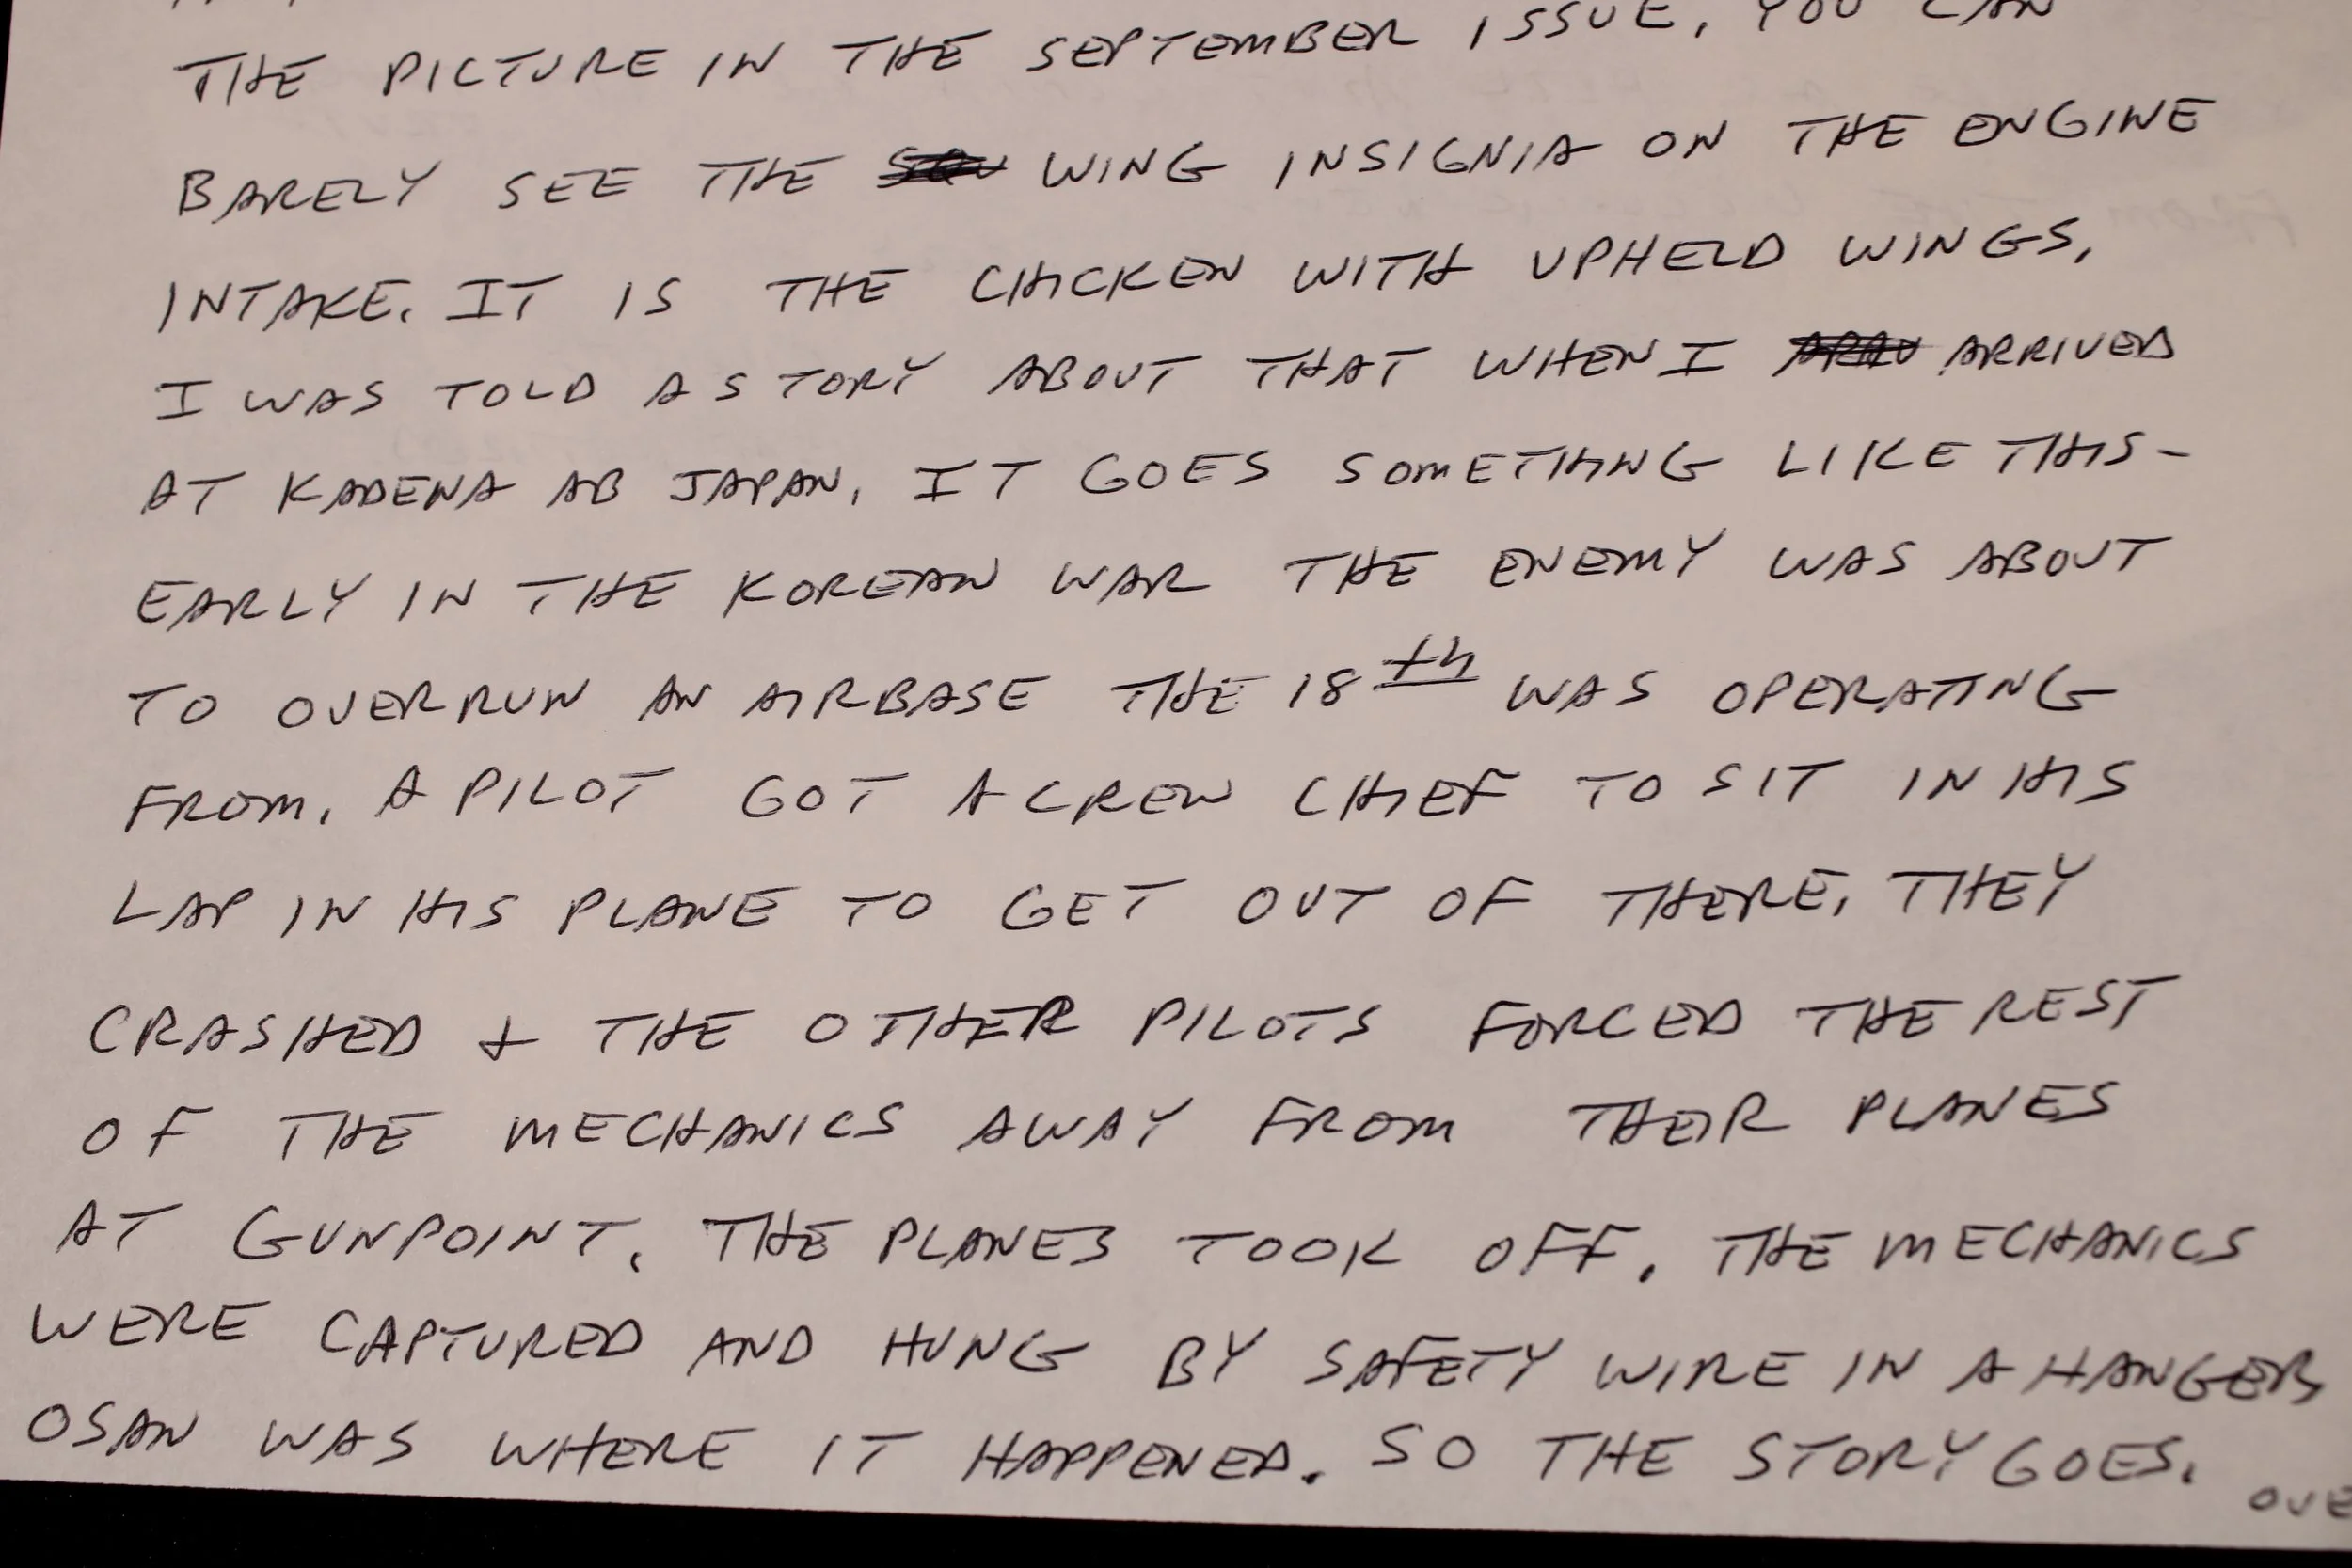 THE PICTURE IN THE SEPTEMBER ISSUE, YOU CAN
BARELY SEE THE WING INSIGNIA ON THE ENGINE
INTAKE. IT IS THE CHICKEN WITH UPHELD WINGS.
I WAS TOLD A STORY ABOUT THAT WHEN I ARRIVED
AT KADENA AB JAPAN. IT GOES SOMETHING LIKE THIS-
EARLY IN THE KOREAN WAR THE ENEMY WAS ABOUT
TO OVERRUN AN AIRBASE THE 18th WAS OPERATING
FROM. A PILOT GOT A CREW CHIEF TO SIT IN HIS
LAP IN HIS PLANE TO GET OUT OF THERE. THEY
CRASHED + THE OTHER PILOTS FORCED THE REST
OF THE MECHANICS AWAY FROM THEIR PLANES
AT GUNPOINT. THE PLANES TOOK OFF. THE MECHANICS
WERE CAPTURED AND HUNG BY SAFETY WIRE IN A HANGER
OSAN WAS WHERE IT HAPPENED. SO THE STORY GOES.
OVE